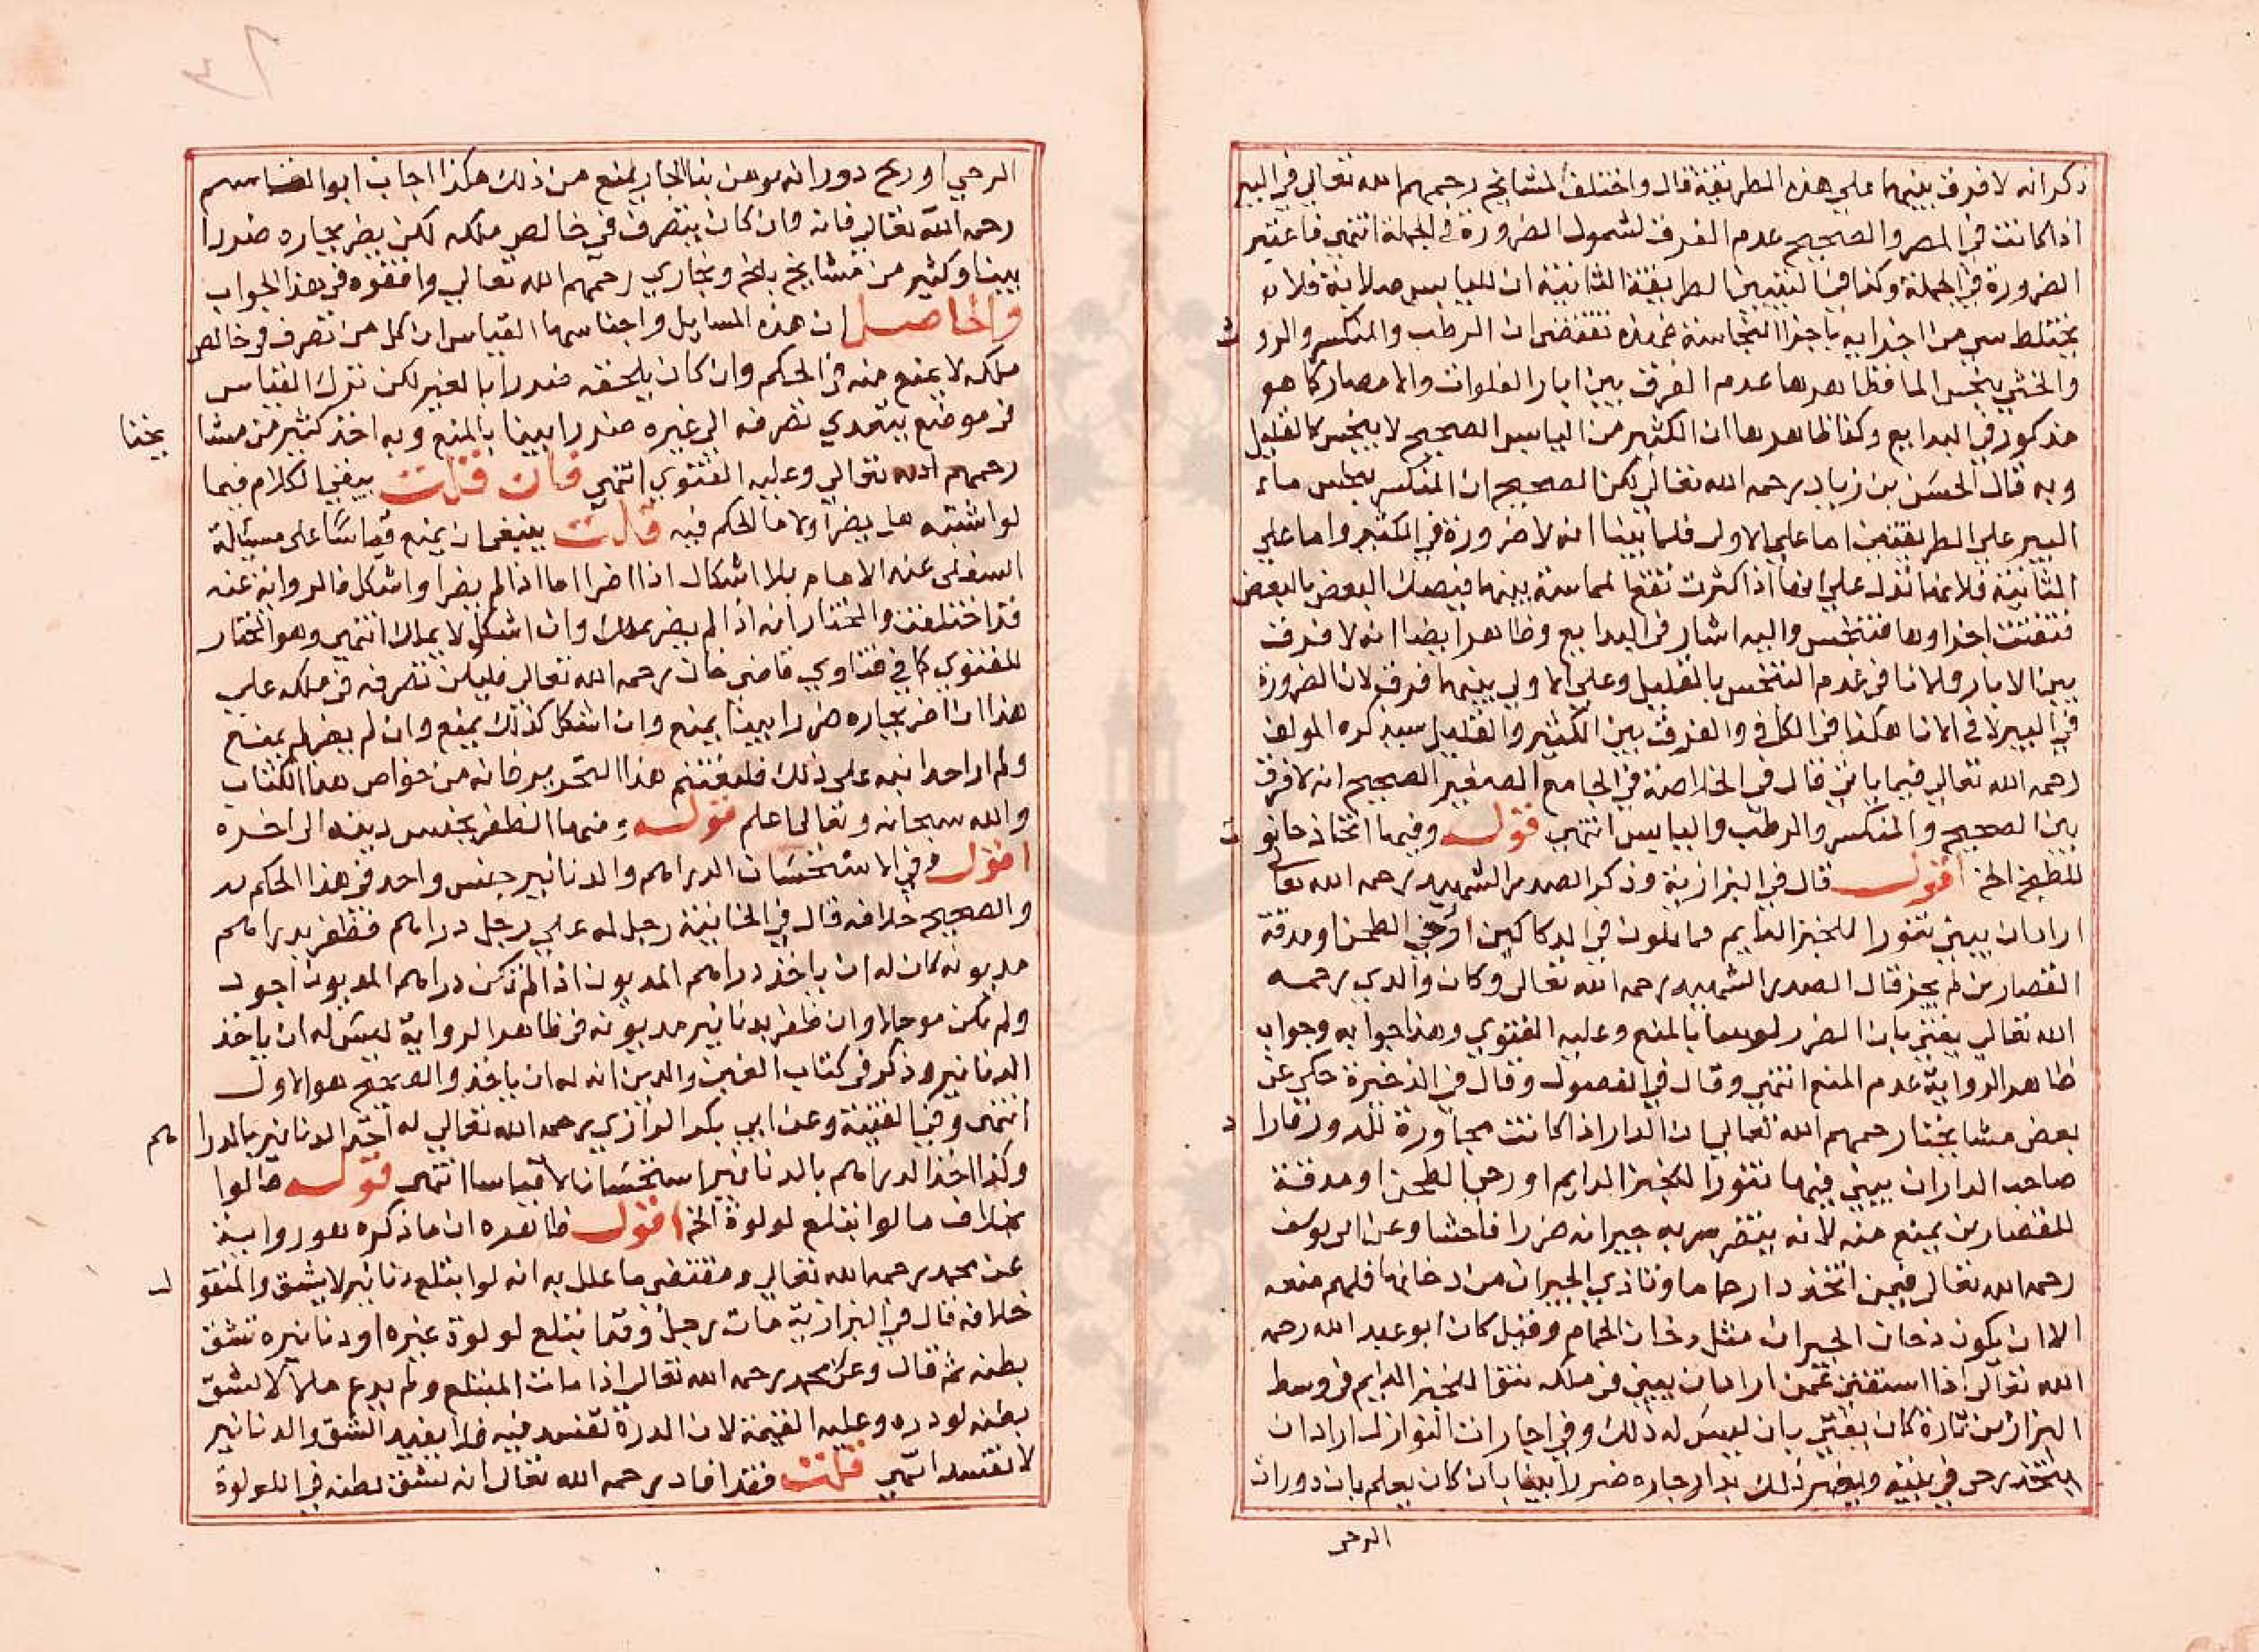 ذكر انه لا فرق بينهما علي هذه الطريقة قال واختلف المشايخ رحمهم الله تعالي في البير
اذا كانت في المصر والصحيح عدم الفرق لشمول الضرورة في الجملة انتهي فاعتبر
الضرورة في الجملة وكذا في التقييد الطريقة الثانية ان لليابس صلابة فلا
يختلط شي من اجزايه باجزا النجاسة فهذه تقتضي ان الرطب والمنكسر والرو ث
والخثي ينجس الما فظاهرها عدم الفرق بين ابار الفلوات والامصار كما هو
مذكور في البدايع وكذا ظاهرها ان الكثير من اليابس الصحيح لا ينجس كالقليل
وبه قال الحسن بن زياد رحمه الله تعالي لكن الصحيح ان المنكسر ينجس ماء
البير علي الطريقتين اما علي الاولي فلما بينا انه لا ضرورة في الكثير واما علي
الثانية فلانها تدل علي انها اذا كثرت تقع المماسة بينهما فيصك البعض بالبعض
فتفتت اجزاوها فتنجس واليه اشار في البدايع وظاهر ايضا انه لا فرق
بين الابار والانا في عدم التنجس بالقليل وعلي الاولي بينهما فرق لان الضرورة
في البير لا في الانا هكذا في الكافي والفرق بين الكثير والقليل سيذكره المولف
رحمه الله تعالي فيما ياتي قال في الخلاصة في الجامع الصغير الصحيح انه لا فرق
بين الصحيح والمنكسر والرطب واليابس انتهي قوله وفيها اتخاذ حانو ت
للطبخ الخ اقول قال في البزازية وذكر الصدر الشهيد رحمه الله تعا
اراد ان يبني تنورا للخبز الدايم مما تكون في الدكاكين او رحي الطحن او مدقة
القصارين لم يجز قال الصدر الشهيد رحمه الله تعالي وكان والدي رحمه
الله تعالي يفتي بان الضرر لو بينا بالمنع وعليه الفتوي وهذا جوابه وجواب
ظاهر الرواية عدم المنع انتهي وقال في الفصول وقال في الذخيرة حكي عن
بعض مشايخنا رحمهم الله تعالي ان الدار اذا كانت مجاورة للدور فارا د
صاحب الدار ان يبني فيها تنورا للخبز الدايم او رحي الطحن او مدقة
للقصارين يمنع منه لانه يتضرر به جيرانه ضررا فاحشا وعن ابي يوسف
رحمه الله تعالي فيمن اتخذ داره حماما وتاذي الجيران من دخانها فلهم منعه
الا ان يكون دخان الجيران مثل دخان الحمام وقيل كان ابو عبد الله رحمه
الله تعالي اذا استفتي عمن اراد ان يبني في ملكه تنورا للخبز الدايم في وسط
البزازين تارة كان يفتي بان ليس له ذلك وفي اجارات النوازل اراد ان
يتخذ رحي في بيته ويضر ذلك بدار جاره ضررا بينا بان كان يعلم بان دوران
الرحي
الرحي او ريح دورانه يوهن بنا الجار يمنع من ذلك هكذا اجاب ابو القاسم
رحمه الله تعالي فانه وان كان يتصرف في خالص ملكه لكن يضر بجاره ضررا
بينا وكثير من مشايخ بلخ وبخاري رحمهم الله تعالي وافقوه في هذا الجواب
والحاصل ان هذه المسايل واجناسها القياس ان كل من تصرف في خالص
ملكه لا يمنع منه في الحكم وان كان يلحقه ضررا بالغير لكن ترك القياس
في موضع يتعدي تصرفه الي غيره ضررا بينا بالمنع وبه اخذ كثير من مشا يخنا
رحمهم الله تعالي وعليه الفتوي انتهي فان قلت بقي الكلام فيما
لو اشتبه هل يضر اولا ما الحكم فيه قلت ينبغي ان يمنع قياسا علي مسيالة
السفلي عند الامام بلا اشكال اذا اضر اما اذا لم يضر او اشكل فالرواية عنه
قد اختلفت والمختار انه اذا لم يضر يملك وان اشكل لا يملك انتهي وهو المختار
للفتوي كما في فتاوي قاضي خان رحمه الله تعالي فليكن تصرفه في ملكه علي
هذا ان اضر بجاره ضررا بينا يمنع وان اشكل كذلك يمنع وان لم يضر لم يمنع
ولم ار احدا نبه علي ذلك فليغتنم هذا التحرير فانه من خواص هذا الكتاب
والله سبحانه وتعالي اعلم قوله ومنها الظفر بجنس دينه الي اخره
اقول وفي الاستحسان الدراهم والدنانير جنس واحد في هذا الحكم
والصحيح خلافه قال في الخانية رجل له علي رجل دراهم فظفر بدراهم
مديونه كان له ان ياخذ دراهم المديون اذا لم تكن دراهم المديون اجود
ولم تكن موجلا وان ظفر بدنانير مديونه في ظاهر الرواية ليس له ان ياخذ
الدنانير وذكر في كتاب العين والدين انه له ان ياخذ والصحيح هو الاول
انتهي وفي القنية وعن ابي بكر الرازي رحمه الله تعالي له اخذ الدنانير بالدرا هم
وكذا اخذ الدراهم بالدنانير استحسانا لا قياسا انتهي قوله قالوا
بخلاف ما لو ابتلع لولوة الخ اقول ظاهره ان ما ذكره هو رواية
عن محمد رحمه الله تعالي ومقتضي ما علل به انه لو ابتلع دنانير لا يشق والمنقو ل
خلافه قال في البزازية مات رجل وقد ابتلع لولوة غيره او دنانيره تشق
بطنه ثم قال وعن محمد رحمه الله تعالي اذا مات المبتلع ولم يدع مالا لا يشق
بطنه لو درة وعليه القيمة لان الدرة تفسد فيه فلا يفيد الشق والدنانير
لا تفسد انتهي قلت فقد افاد رحمه الله تعالي انه تشق بطنه في اللولوة